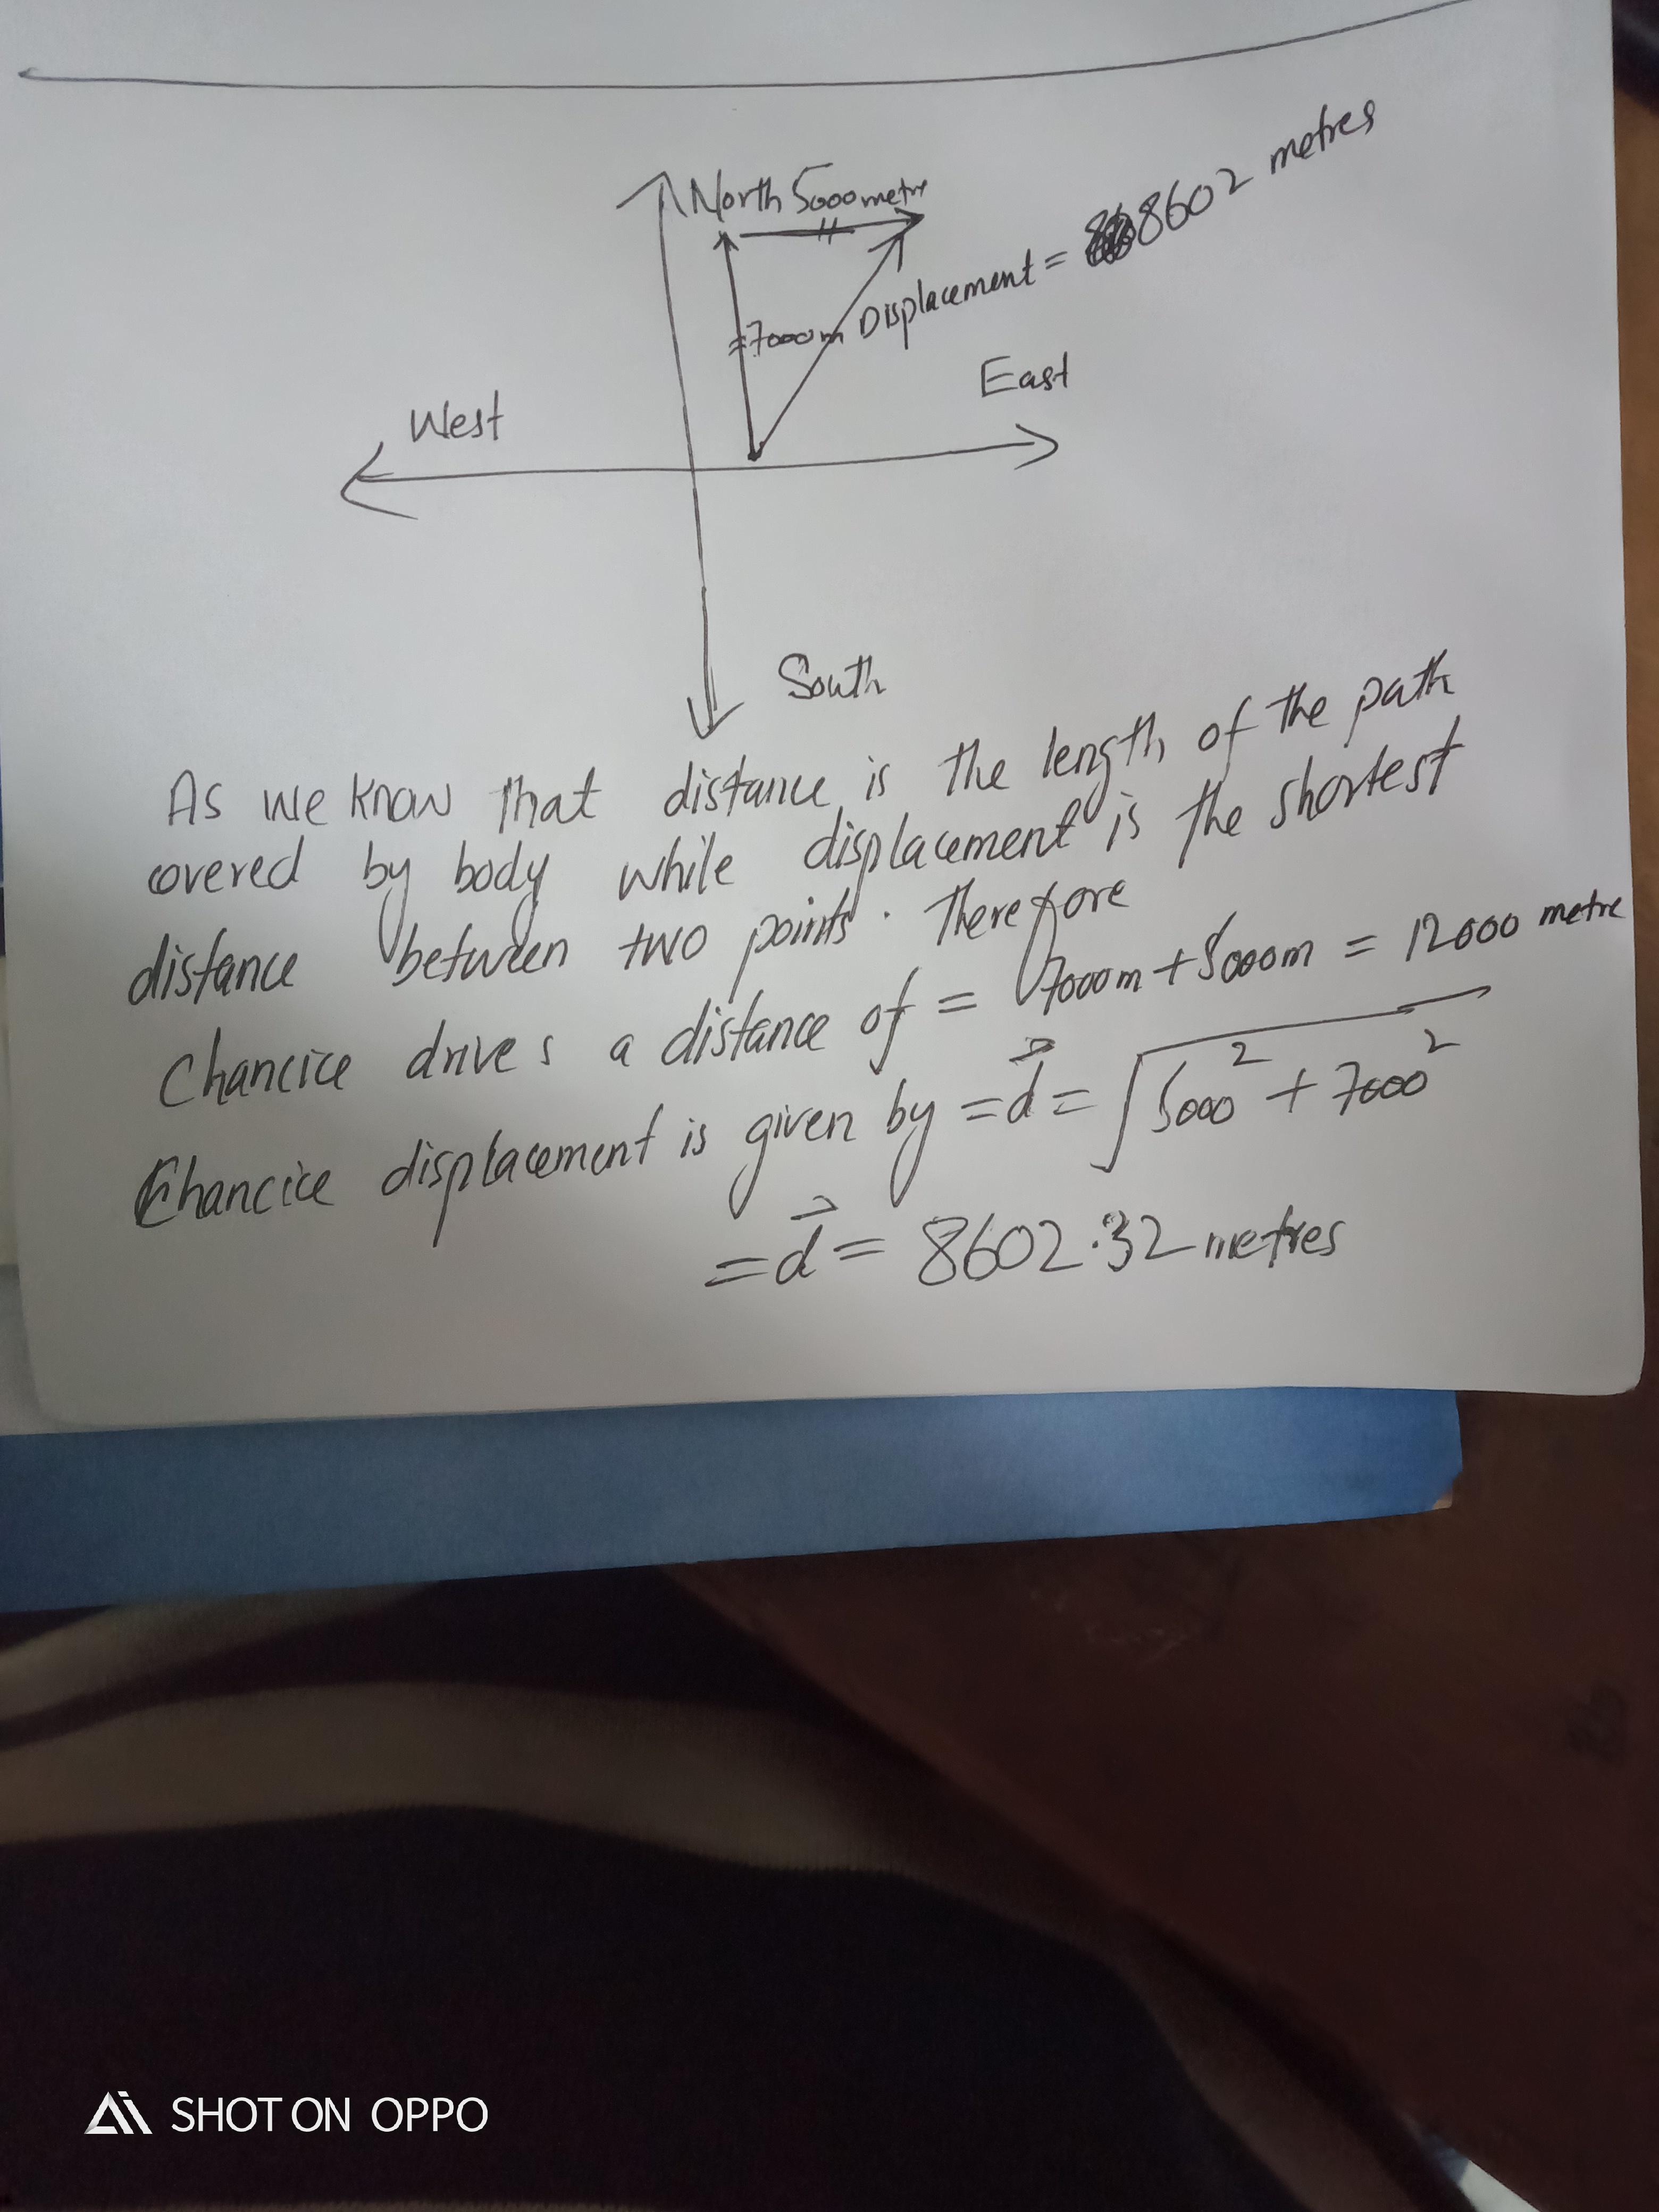 North 5000 metre
=7000m Displacement = 8602 metres
East
West
South
As we know that distance is the length of the path
covered by body while displacement is the shortest
distance between two points. Therefore
Chancice drives a distance of = 7000m + 5000m = 12000 metre
Chancice displacement is given by = d⃗ = √5000² + 7000²
= d⃗ = 8602.32 metres
SHOT ON OPPO